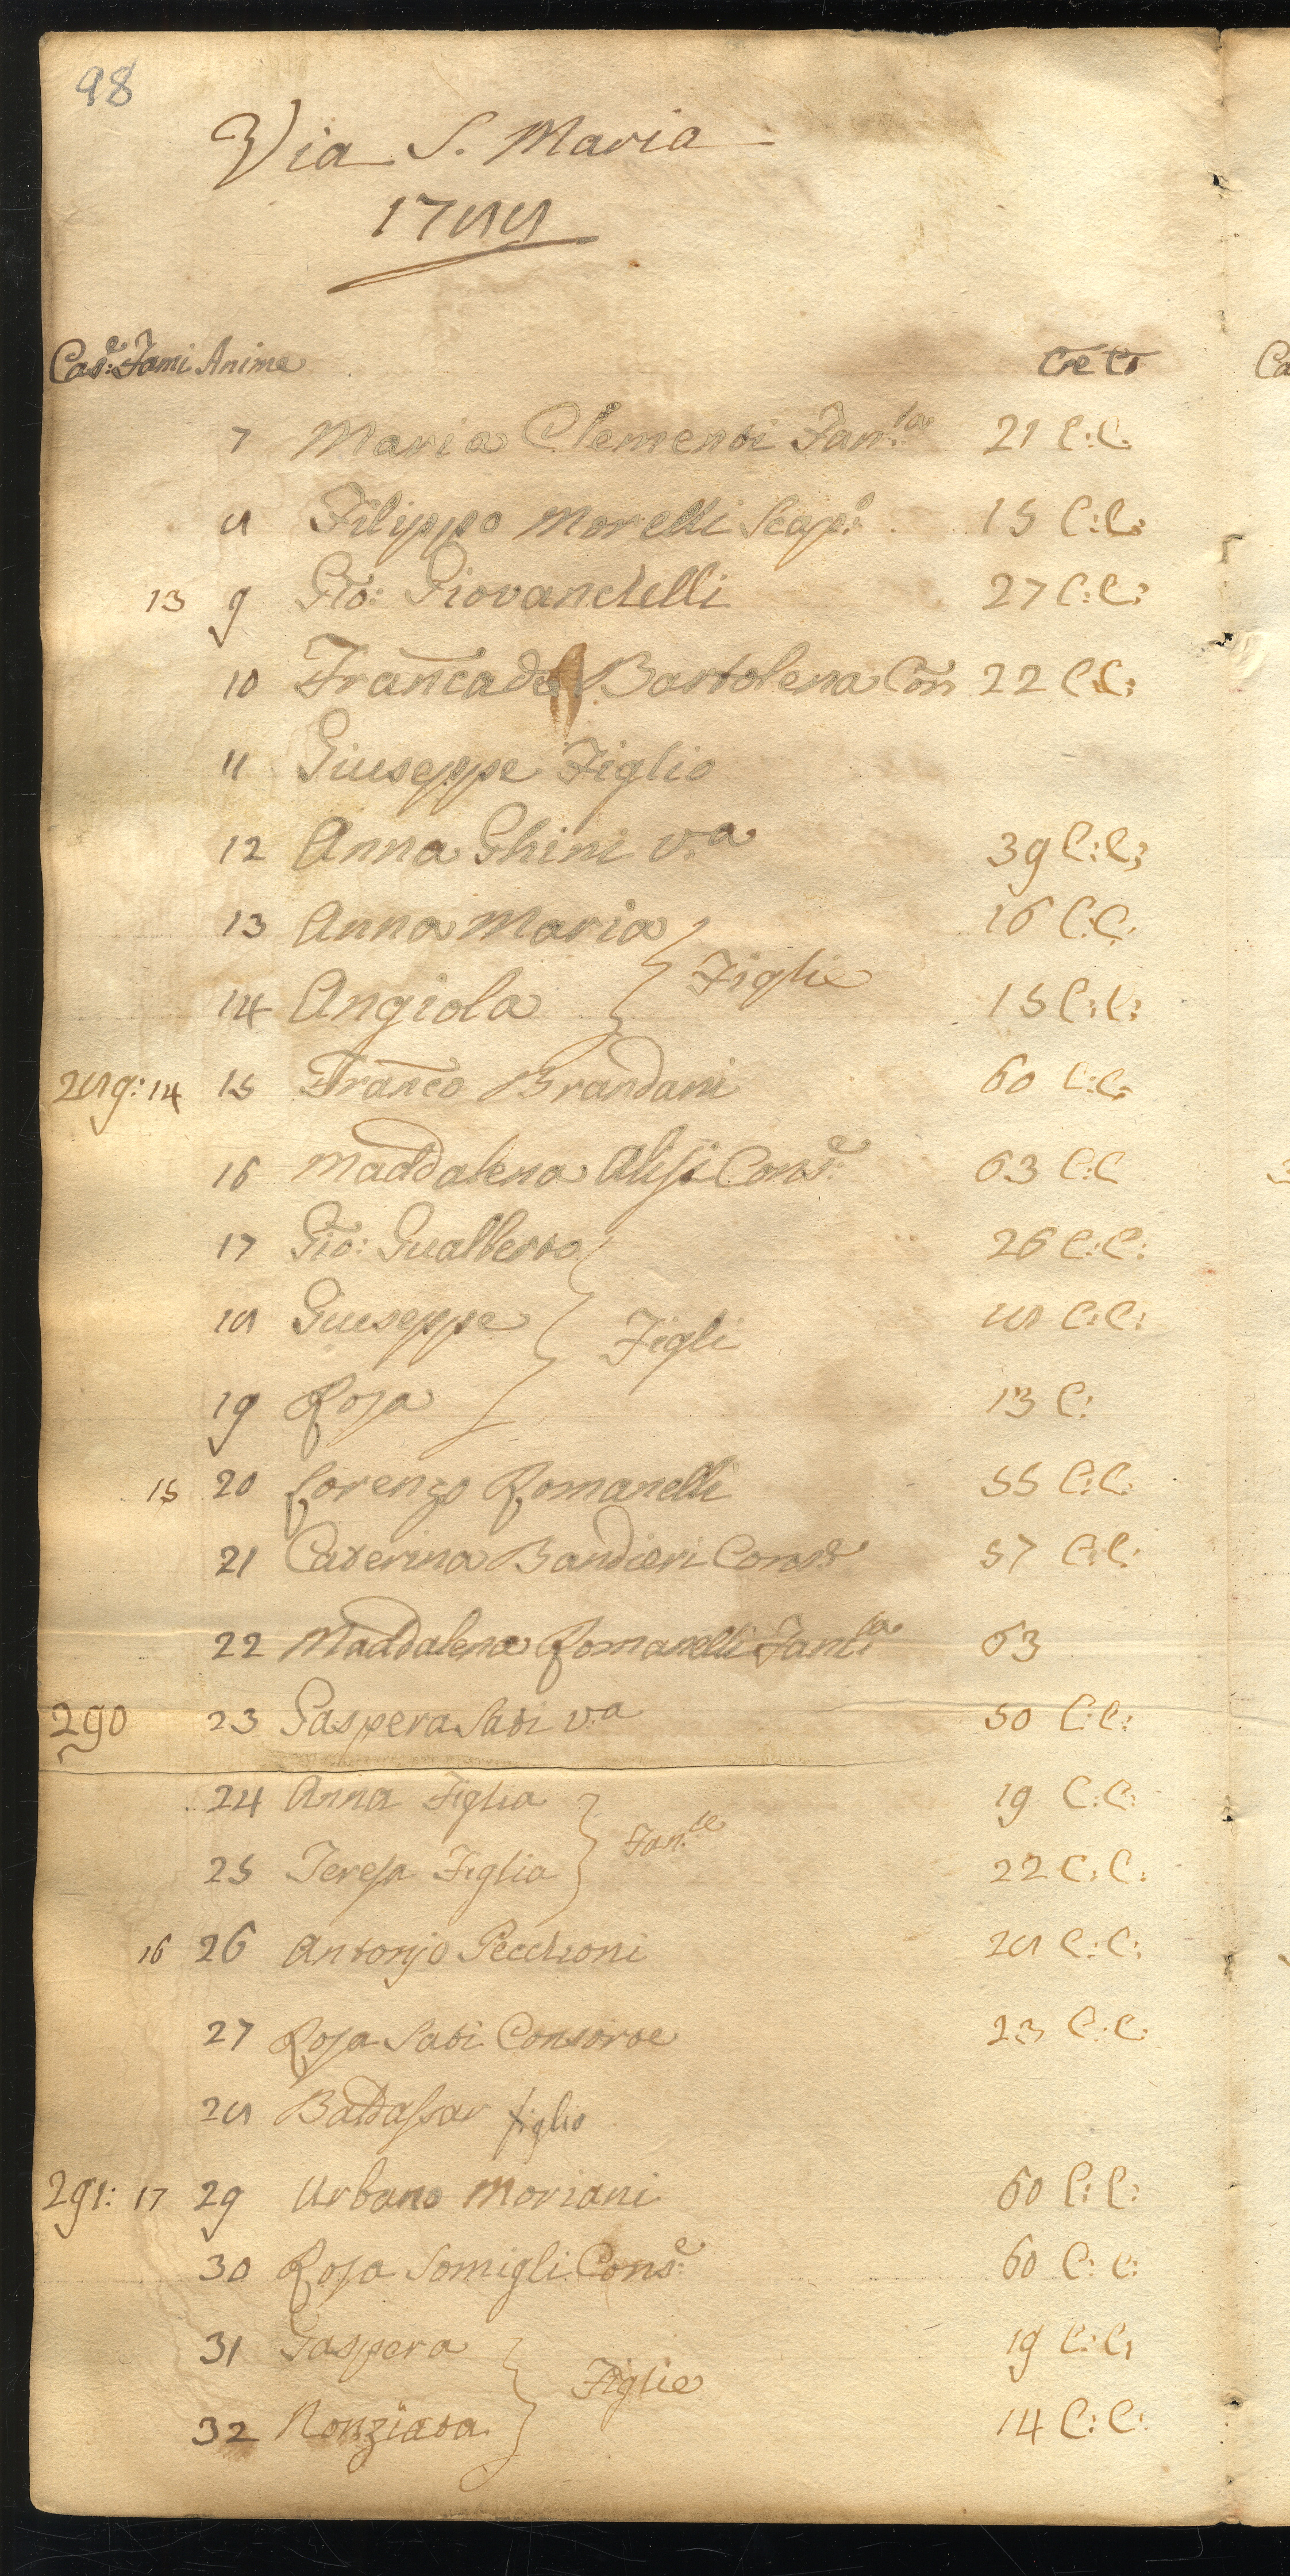 98
Via S. Maria
1788
Cas.e Fami Anime
C. e C.
7 Maria Clementi Fan.la 21 C: C.
8 Filippo Morelli Scap.o 15 C: C:
13 9 Gio: Giovanchelli 27 C: C:
10 Franca Bartolena Con 22 C: C:
11 Giuseppe Figlio
12 Anna Ghini v.a 39 C: C:
13 Anna Maria 16 C: C.
Figlie
14 Angiola 15 C: C:
289: 14 15 Franco Brandani 60 C: C.
16 Maddalena Alisi Cons.e 63 C: C
17 Gio: Gualberto 26 C: C:
18 Giuseppe 18 C: C:
Figli
19 Rosa 13 C:
15 20 Lorenzo Romanelli 55 C: C:
21 Caterina Bandieri Cons.e 57 C: C:
22 Maddalena Romanelli Fanc.la 63
290 23 Gaspera Sati v.a 50 C: C:
24 Anna Figlia 19 C: C:
Fan.le
25 Teresa Figlia 22 C: C:
16 26 Antonjo Pecchioni 28 C: C:
27 Rosa Sati Consorte 23 C: C:
28 Baldassar figlio
291: 17 29 Urbano Moriani 60 C: C:
30 Rosa Somigli Cons.e 60 C: C:
31 Gaspera 19 C: C:
Figlie
32 Nonziata 14 C: C: